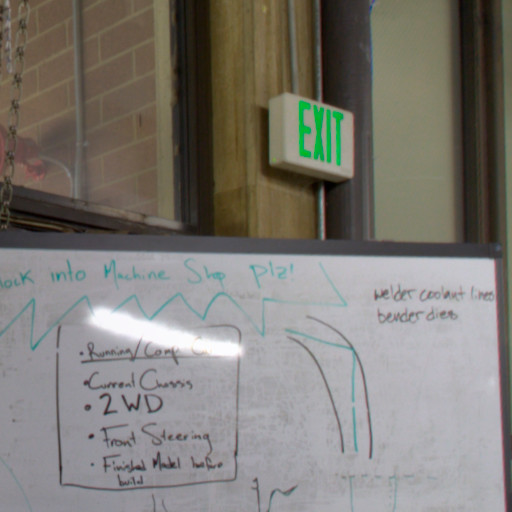 EXIT
into Machine Shop Plz!
welder coolant lines
bender dies
• Running/Comp
• Current Chassis
• 2WD
• Front Steering
• Finished Model before
build